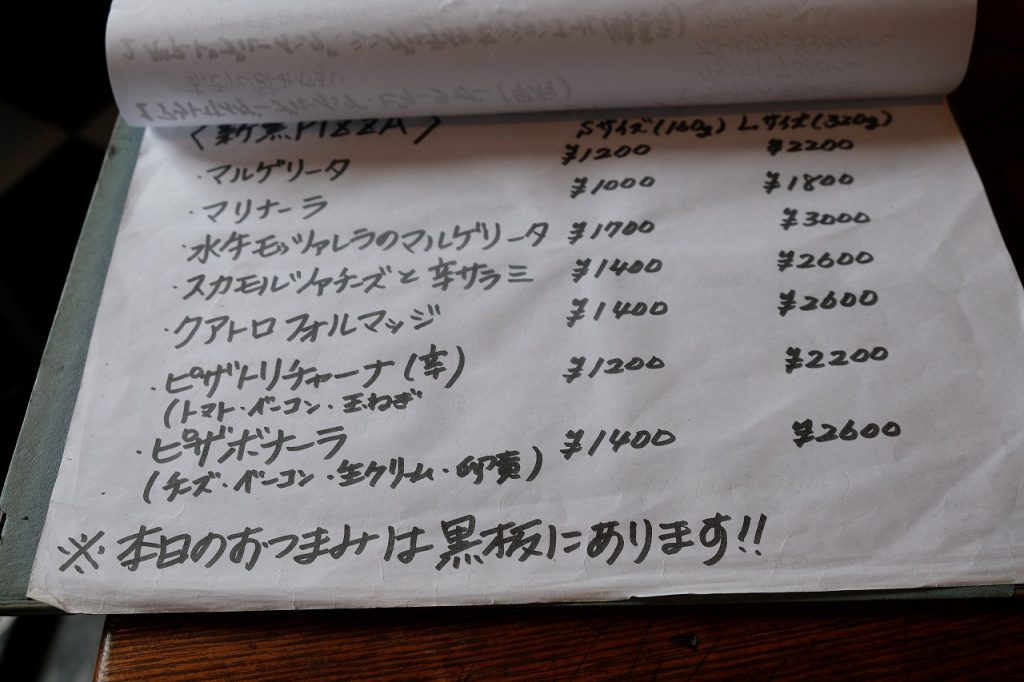 〈薪窯PIZZA〉 Sサイズ(160g) Lサイズ(320g)
・マルゲリータ ¥1200 ¥2200
・マリナーラ ¥1000 ¥1800
・水牛モッツァレラのマルゲリータ ¥1700 ¥3000
・スカモルツァチーズと辛サラミ ¥1400 ¥2600
・クアトロフォルマッジ ¥1400 ¥2600
・ピザトリチャーナ(辛) ¥1200 ¥2200
(トマト・ベーコン・玉ねぎ
・ピザボナーラ ¥1400 ¥2600
(チーズ・ベーコン・生クリーム・卵黄)
※本日のおつまみは黒板にあります!!